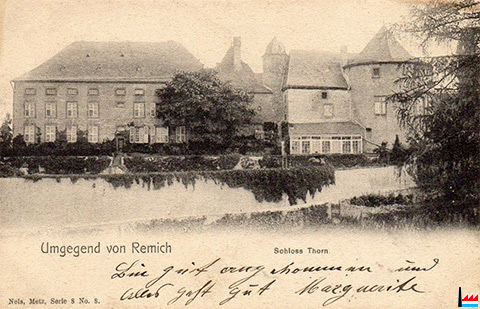 Umgegend von Remich
Schloss Thorn.
Bin gut angekommen und
Alles geht gut Marguerite
Nels, Metz, Serie 8 No. 8.